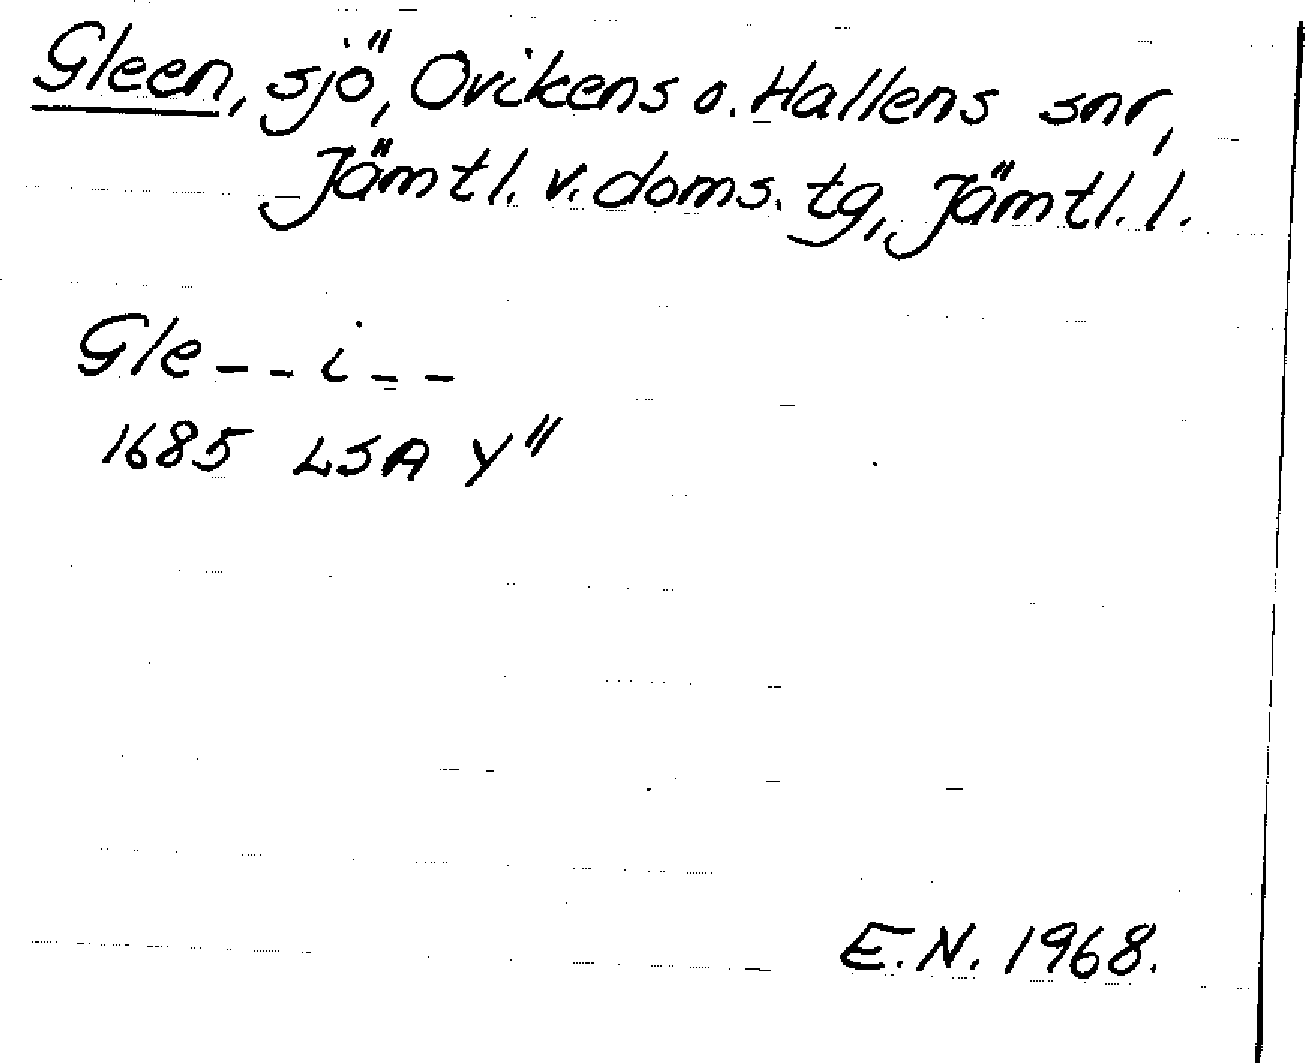 Gleen, sjö, Ovikens o. Hallens snr,
Jämtl. v. doms. tg, Jämtl. l.
Gle - - i - -
1685 LSA Y"
E.N. 1968.